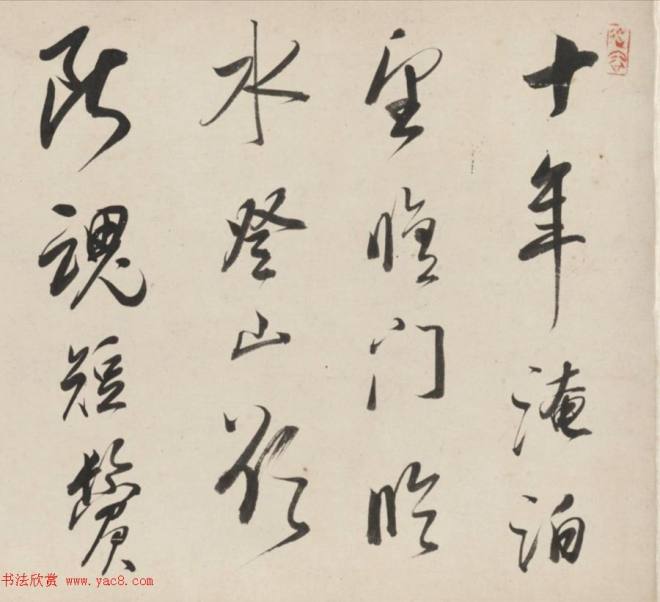 十年淹泊
望門臨
水登山欲
斷魂短鬢
书法欣赏 www.yac8.com